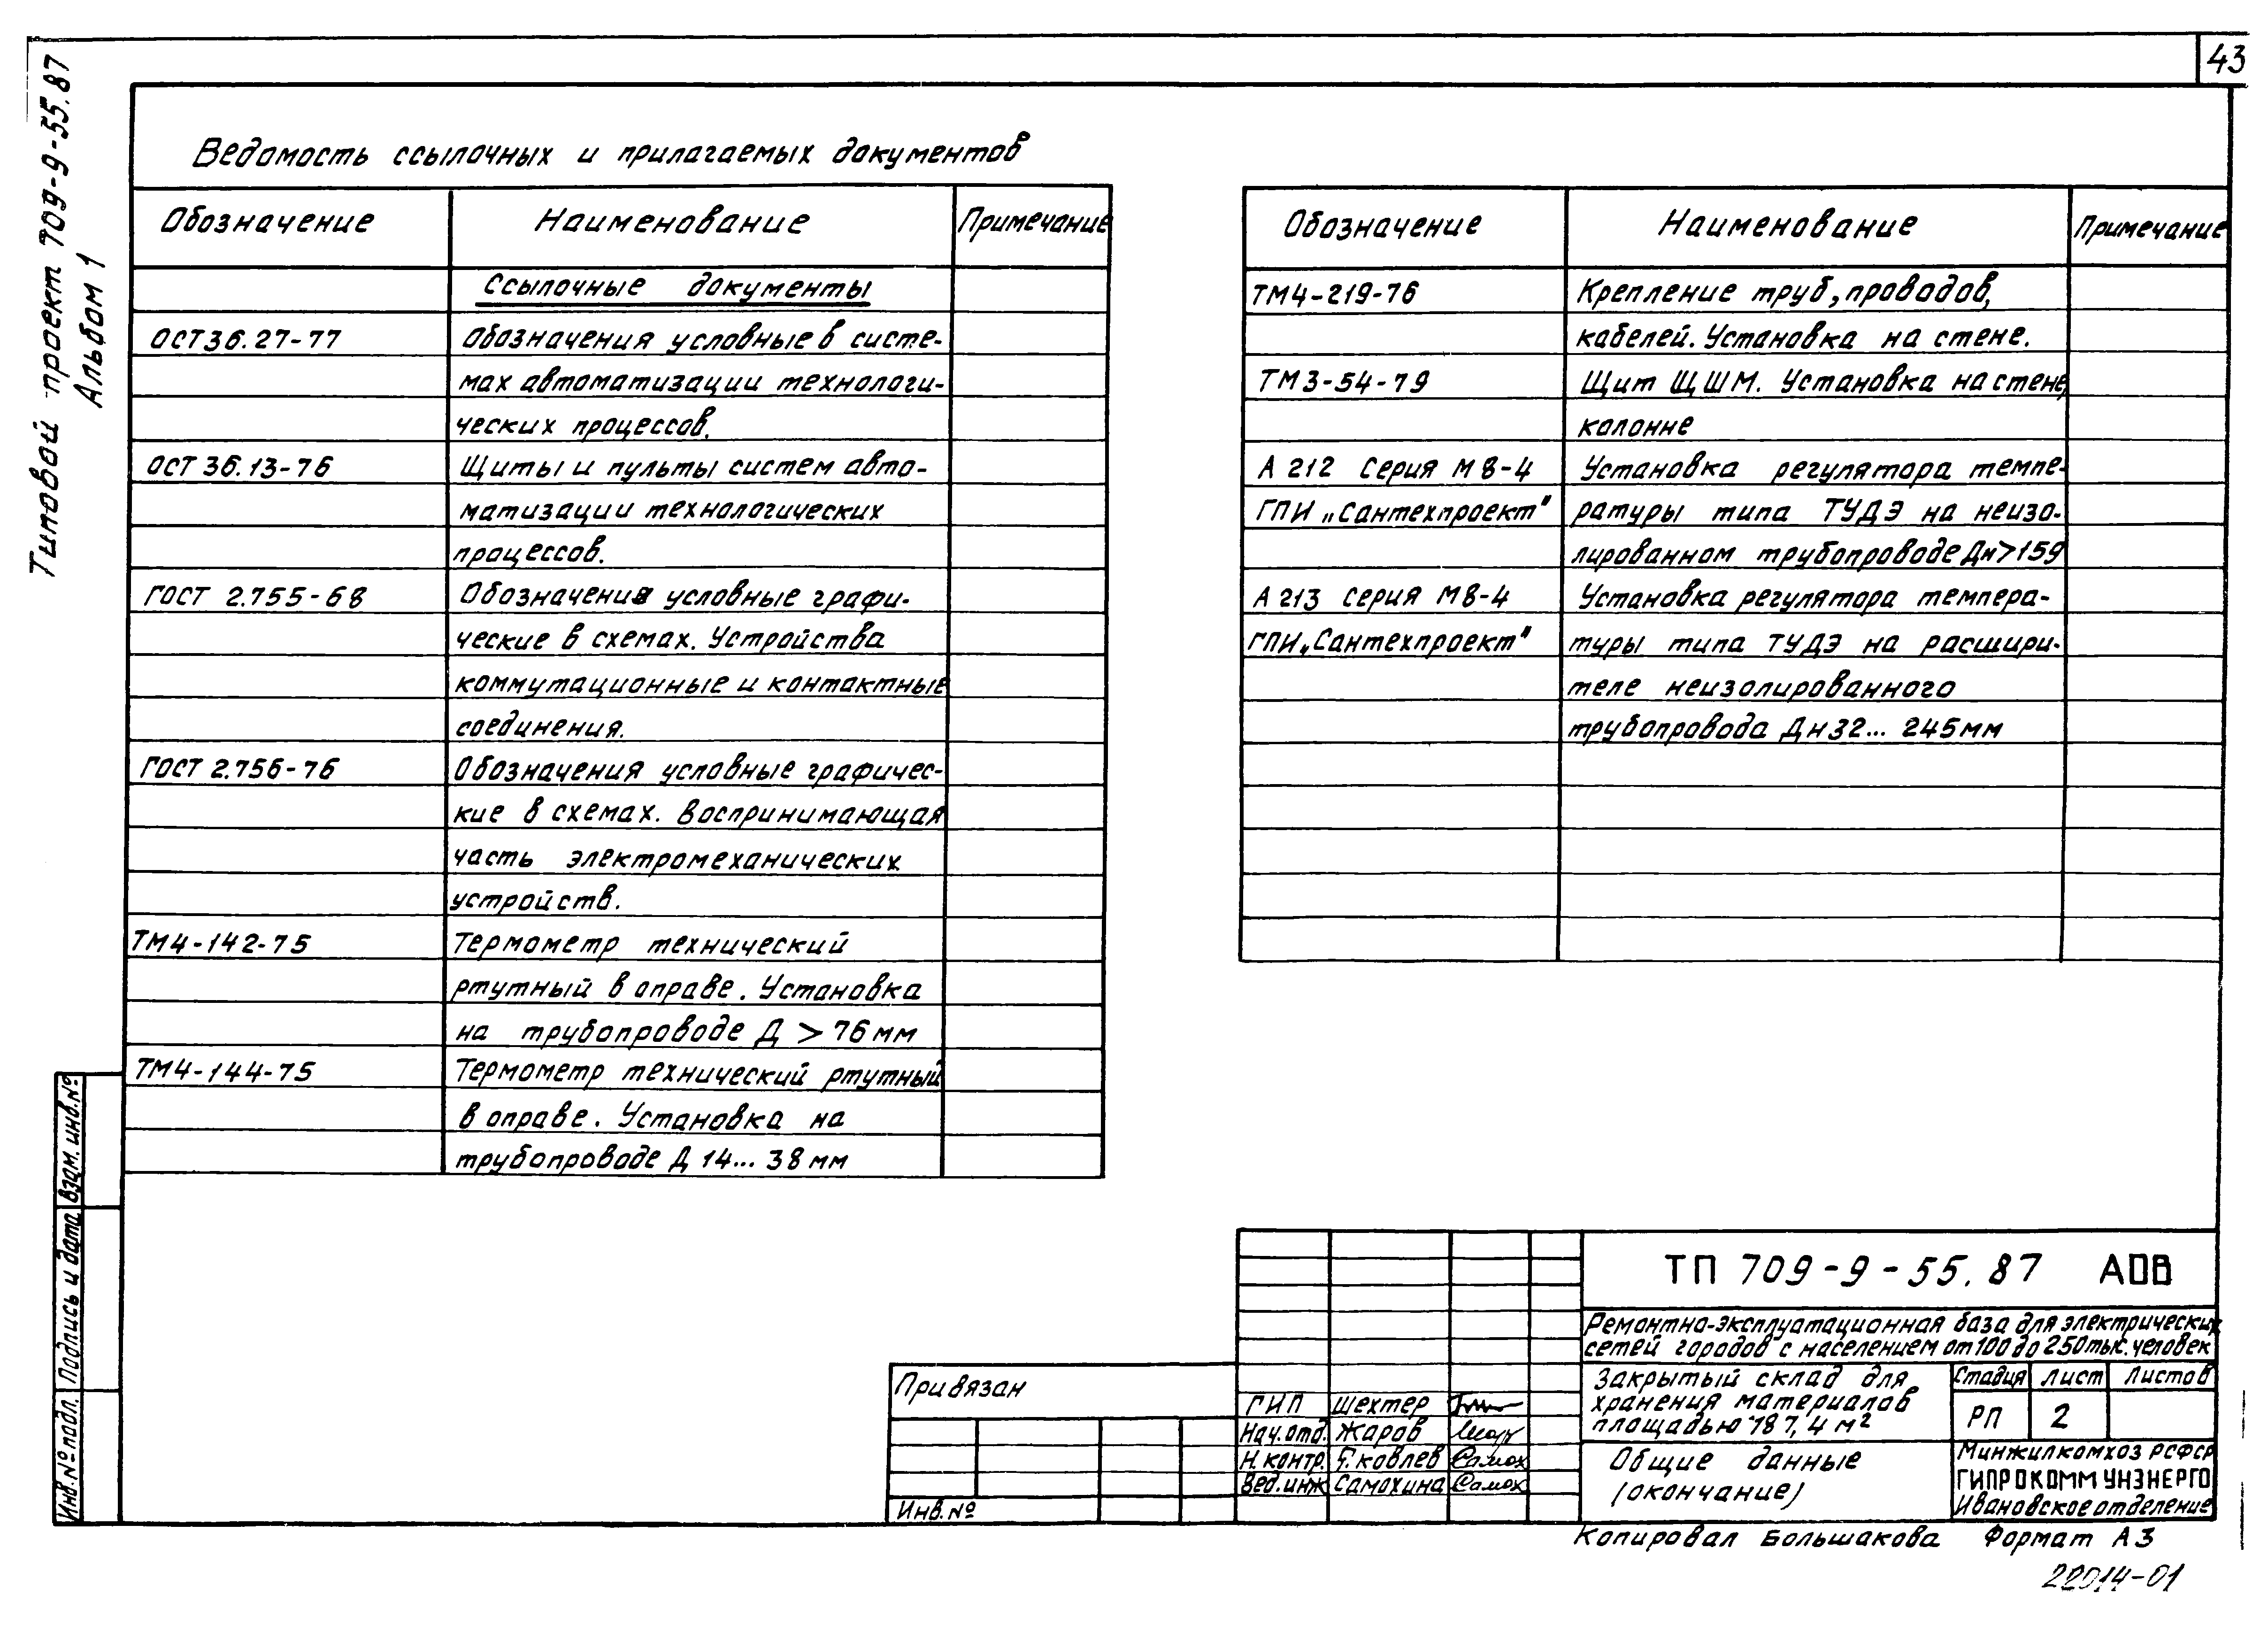 43
Типовой проект 709-9-55.87
Альбом 1
Ведомость ссылочных и прилагаемых документов
Обозначение Наименование Примечание
Ссылочные документы
ОСТ 36.27-77 Обозначения условные в систе-
мах автоматизации технологи-
ческих процессов.
ОСТ 36.13-76 Щиты и пульты систем авто-
матизации технологических
процессов.
ГОСТ 2.755-68 Обозначения условные графи-
ческие в схемах. Устройства
коммутационные и контактные
соединения.
ГОСТ 2.756-76 Обозначения условные графичес-
кие в схемах. Воспринимающая
часть электромеханических
устройств.
ТМ4-142-75 Термометр технический
ртутный в оправе. Установка
на трубопроводе Д > 76 мм
ТМ4-144-75 Термометр технический ртутный
в оправе. Установка на
трубопроводе Д 14... 38 мм
Обозначение Наименование Примечание
ТМ4-219-76 Крепление труб, проводов,
кабелей. Установка на стене.
ТМ3-54-79 Щит ЩШМ. Установка на стене,
колонне
А 212 серия М8-4 Установка регулятора темпе-
ГПИ „Сантехпроект" ратуры типа ТУДЭ на неизо-
лированном трубопроводе Дн>159
А 213 серия М8-4 Установка регулятора темпера-
ГПИ „Сантехпроект" туры типа ТУДЭ на расшири-
теле неизолированного
трубопровода Дн 32... 245 мм
Инв.№ подл. Подпись и дата Взам. инв.№
Привязан
Инв. №
ТП 709-9-55.87 АОВ
Ремонтно-эксплуатационная база для электрических
сетей городов с населением от 100 до 250 тыс. человек
ГИП Шехтер
Нач. отд. Жаров
Н. контр. Яковлев
Вед. инж Самохина
Закрытый склад для
хранения материалов
площадью 187,4 м²
Стадия Лист Листов
РП 2
Общие данные
(окончание)
Минжилкомхоз РСФСР
ГИПРОКОММУНЭНЕРГО
Ивановское отделение
Копировал Большакова Формат А3
22014-01